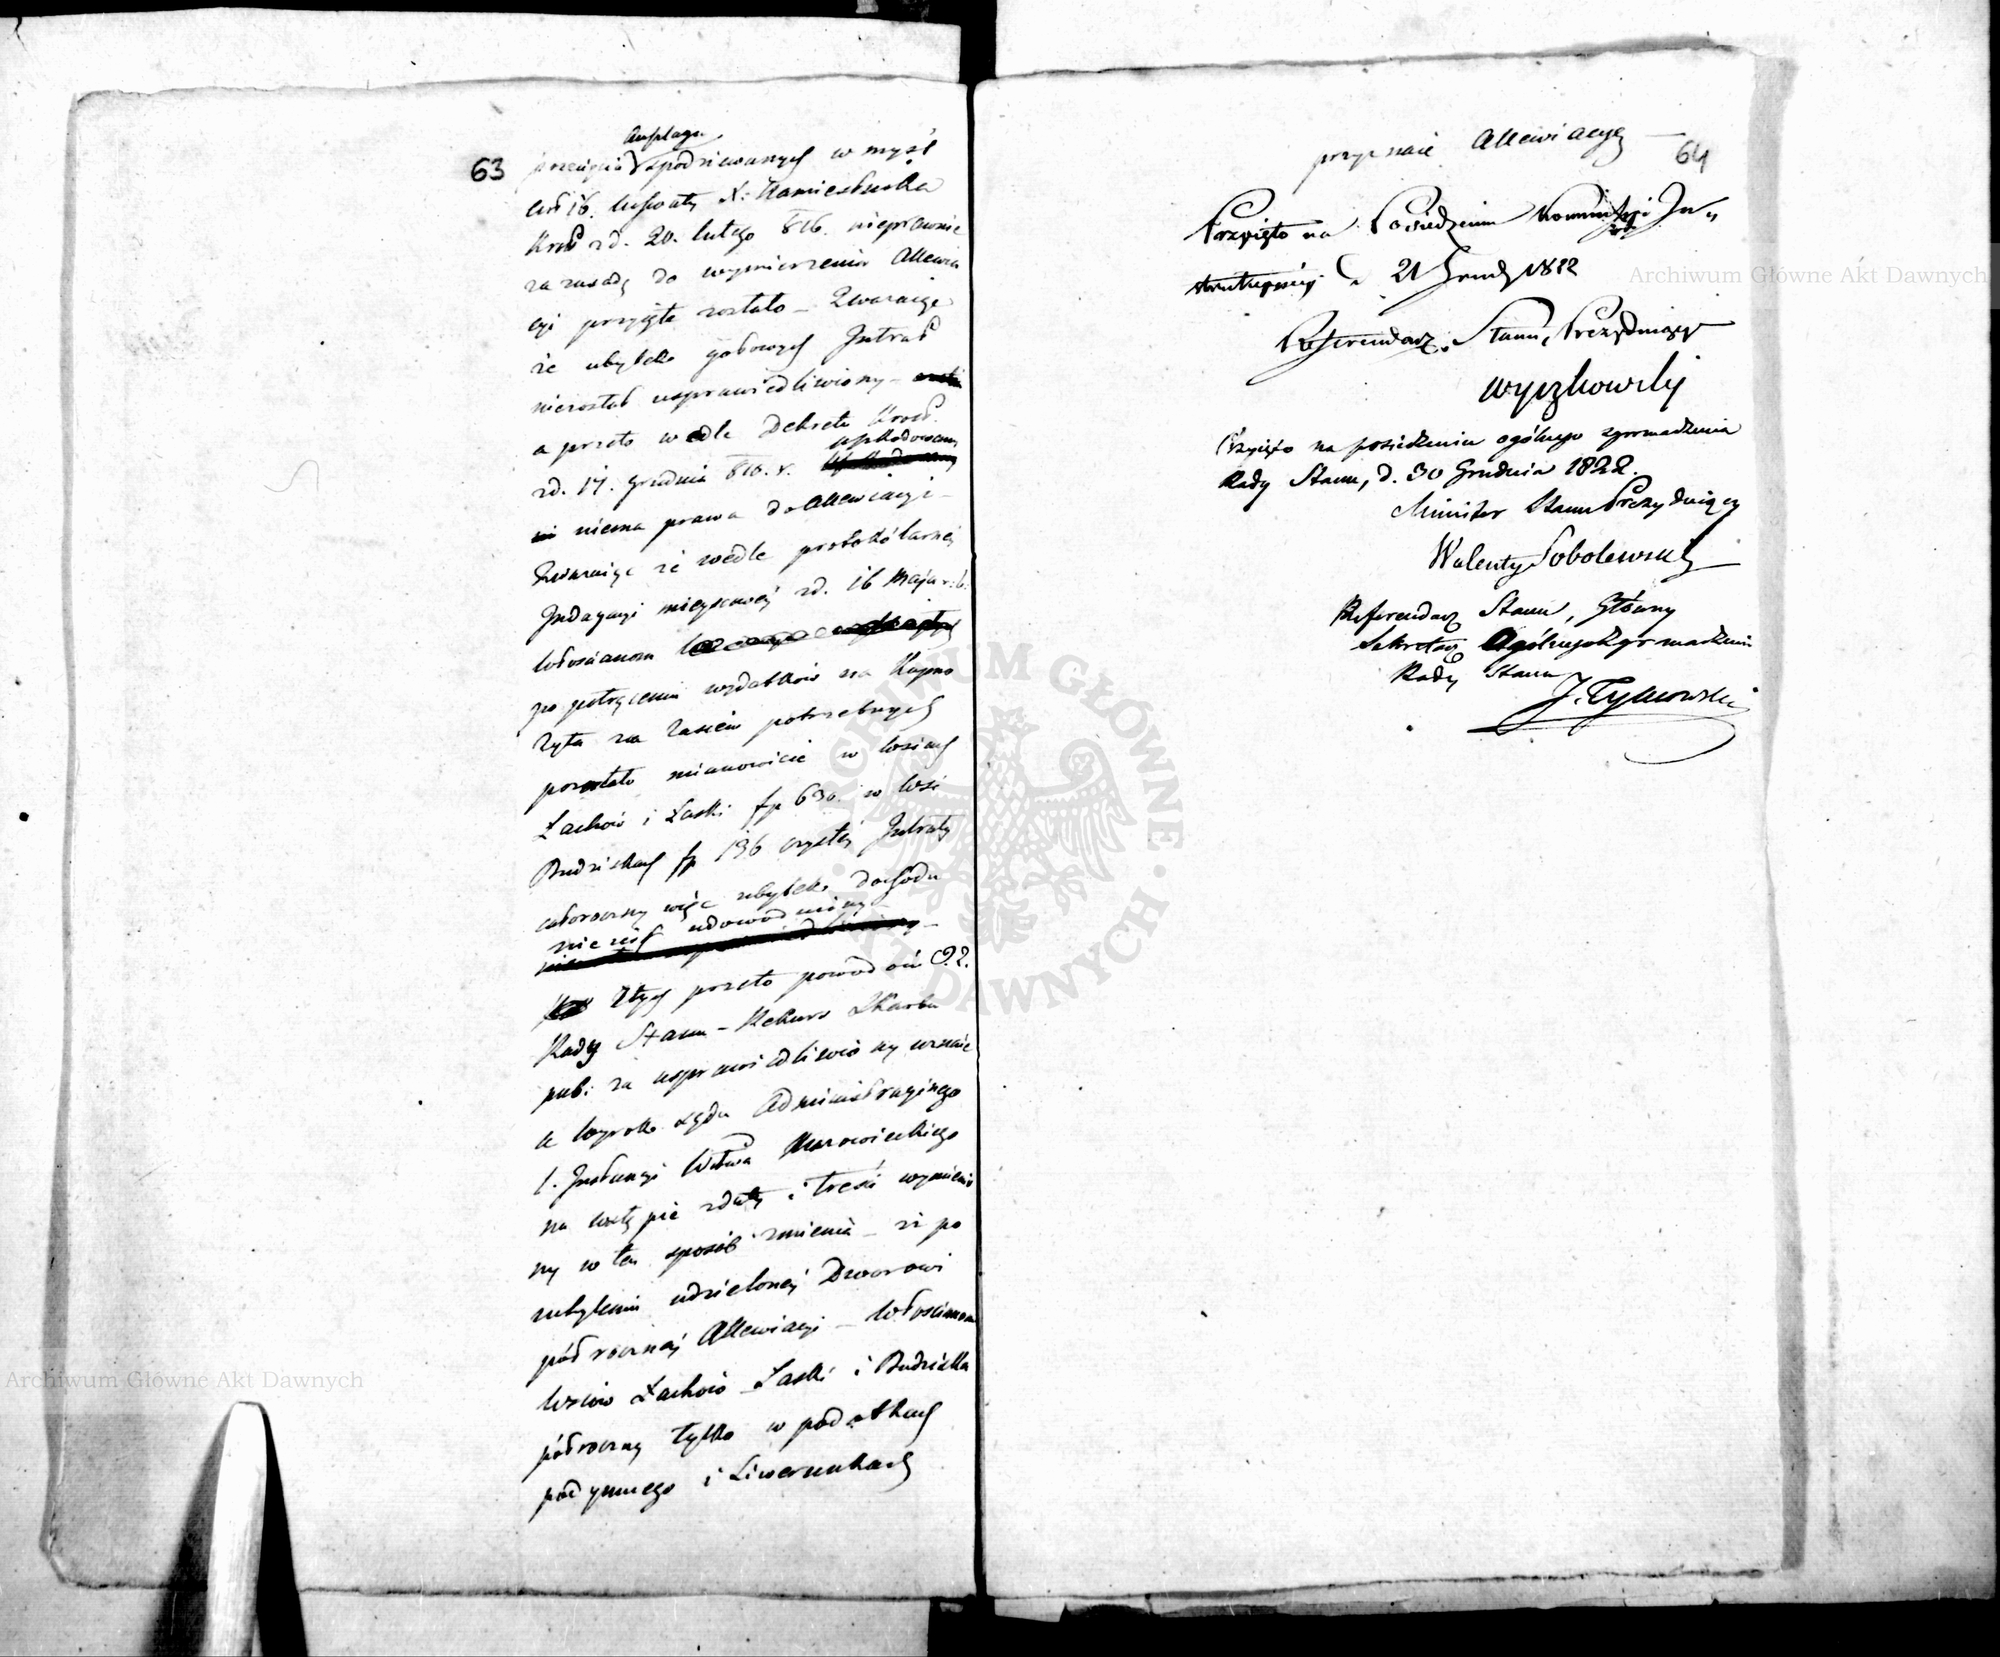 63
spodziewanych w myśl
Art 16. X: Namiestnika
Król zd. 20. lutego 816. nieprawnie
za zasadę do wymierzenia Allewia
cyi przyjęte zostało – Zważaiąc
że ubytek gotowych Intrat
niezostał usprawiedliwiony –
a przeto wedle Dekretu Król.
zd. 17. Grudnia 816. r.
niema prawa do Allewiacyi –
Zważaiąc że wedle protokólarney
Indagacyi mieyscowey zd. 16 Maja r. b.
Włościanom
po potrąceniu wydatków na Kupno
żyta na zasiew potrzebnych
pozostało mianowicie w wsiach
Łachów i Laski fp 630. w wsi
Budziskach fp 136 czystey Intraty
całoroczny więc ubytek dochodu
nie iest udowodniony –
Ztych przeto powodów O. Z.
Rady Stanu – Rekurs Skarbu
pub: za usprawiedliwiony uznaie
a wyrok Sądu Administracyinego
1. Instancyi Wdztwa Mazowieckiego
na wstępie zdaty i treści wymienio
ny w ten sposób zmienia – iż po
uchyleniu udzieloney Dworowi
półroczney Allewiacyi – Włościanom
wsiów Łachów Laski i Budziska
półroczną tylko w podatkach
podymnego i Liwerunkach
64
przyznaie Allewiacyę –
Przyięto na Posiedzeniu Kommissyi In„
strukcyiney. d. 21 Grud 1822
Referendarz Stanu, Prezyduiący
Wyczkowski
Przyięto na posiedzeniu ogólnego zgromadzenia
Rady Stanu, d. 30 Grudnia 1822.
Minister Stanu Prezyduiący
Walenty Sobolewski
Referendarz Stanu, Główny
Sekretarz Ogólnego Zgromadzenia
Rady Stanu
J. Tymowski
ARCHIWUM GŁÓWNE AKT DAWNYCH
Archiwum Główne Akt Dawnych
Archiwum Główne Akt Dawnych